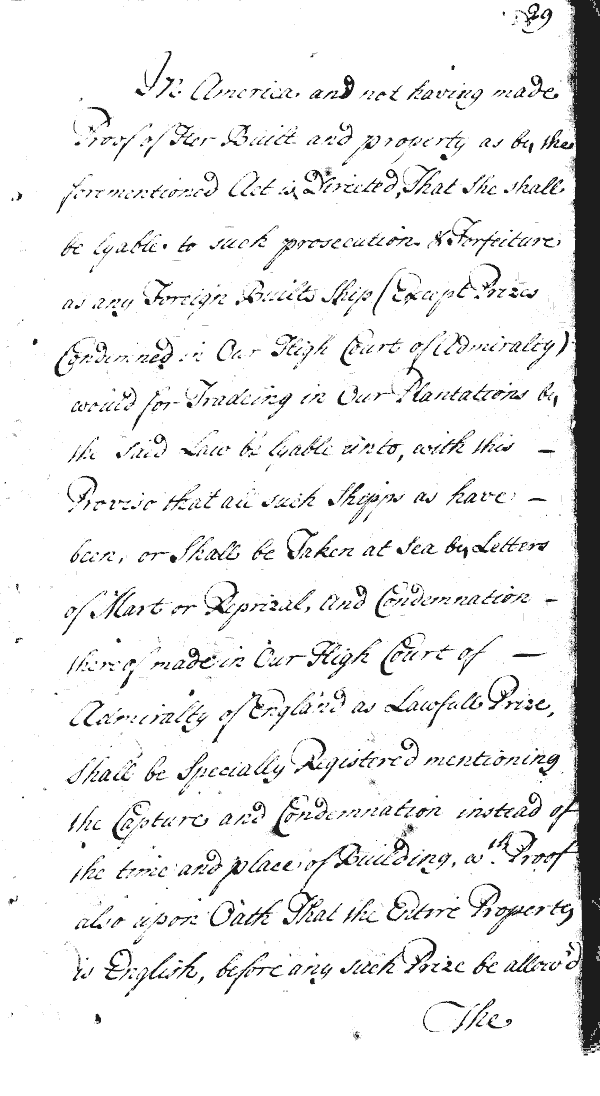 29
In America and not having made
Proof of Her Built and property as by the
forementioned Act is Directed, That She shall
be lyable to such prosecution & Forfeiture
as any Foreign Built Ship (Except Prizes
Condemned in Our High Court of Admiralty)
would for Tradeing in Our Plantations by
the said Law be lyable unto, with this —
Proviso that all such Shipps as have —
been, or Shall be Taken at Sea by Letters
of Mart or Reprizal, and Condemnation —
thereof made in Our High Court of —
Admiralty of England as Lawfull Prize,
shall be Specially Registered mentioning
the Capture and Condemnation instead of
the time and place of Building, wth. Proof
also upon Oath That the Entire Property
is English, before any such Prize be allow'd
The